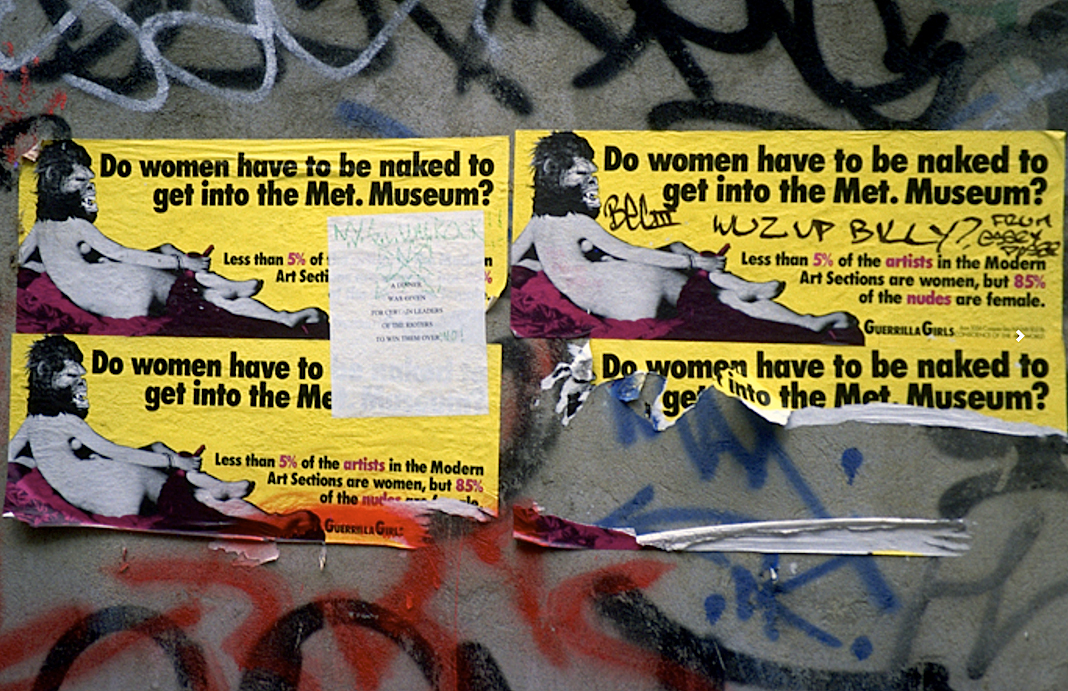 Do women have to be naked to
get into the Met. Museum?
Less than 5% of
Art Secti
%
A DINNER
WAS GIVEN
FOR CERTAIN LEADERS
OF THE RIOTERS
TO WIN THEM OVER
Do women have to be naked to
get into the Met. Museum?
WUZ UP BILLY?
FROM
Less than 5% of the artists in the Modern
Art Sections are women, but 85%
of the nudes are female.
GUERRILLA GIRLS
CONSCIENCE OF THE WORLD
Do women have to
get into the Me
Less than 5% of the artists in the Modern
Art Sections are women, but 85%
of the nudes are female.
GUERRILLA GIRLS
Do women have to be naked to
get into the Met. Museum?